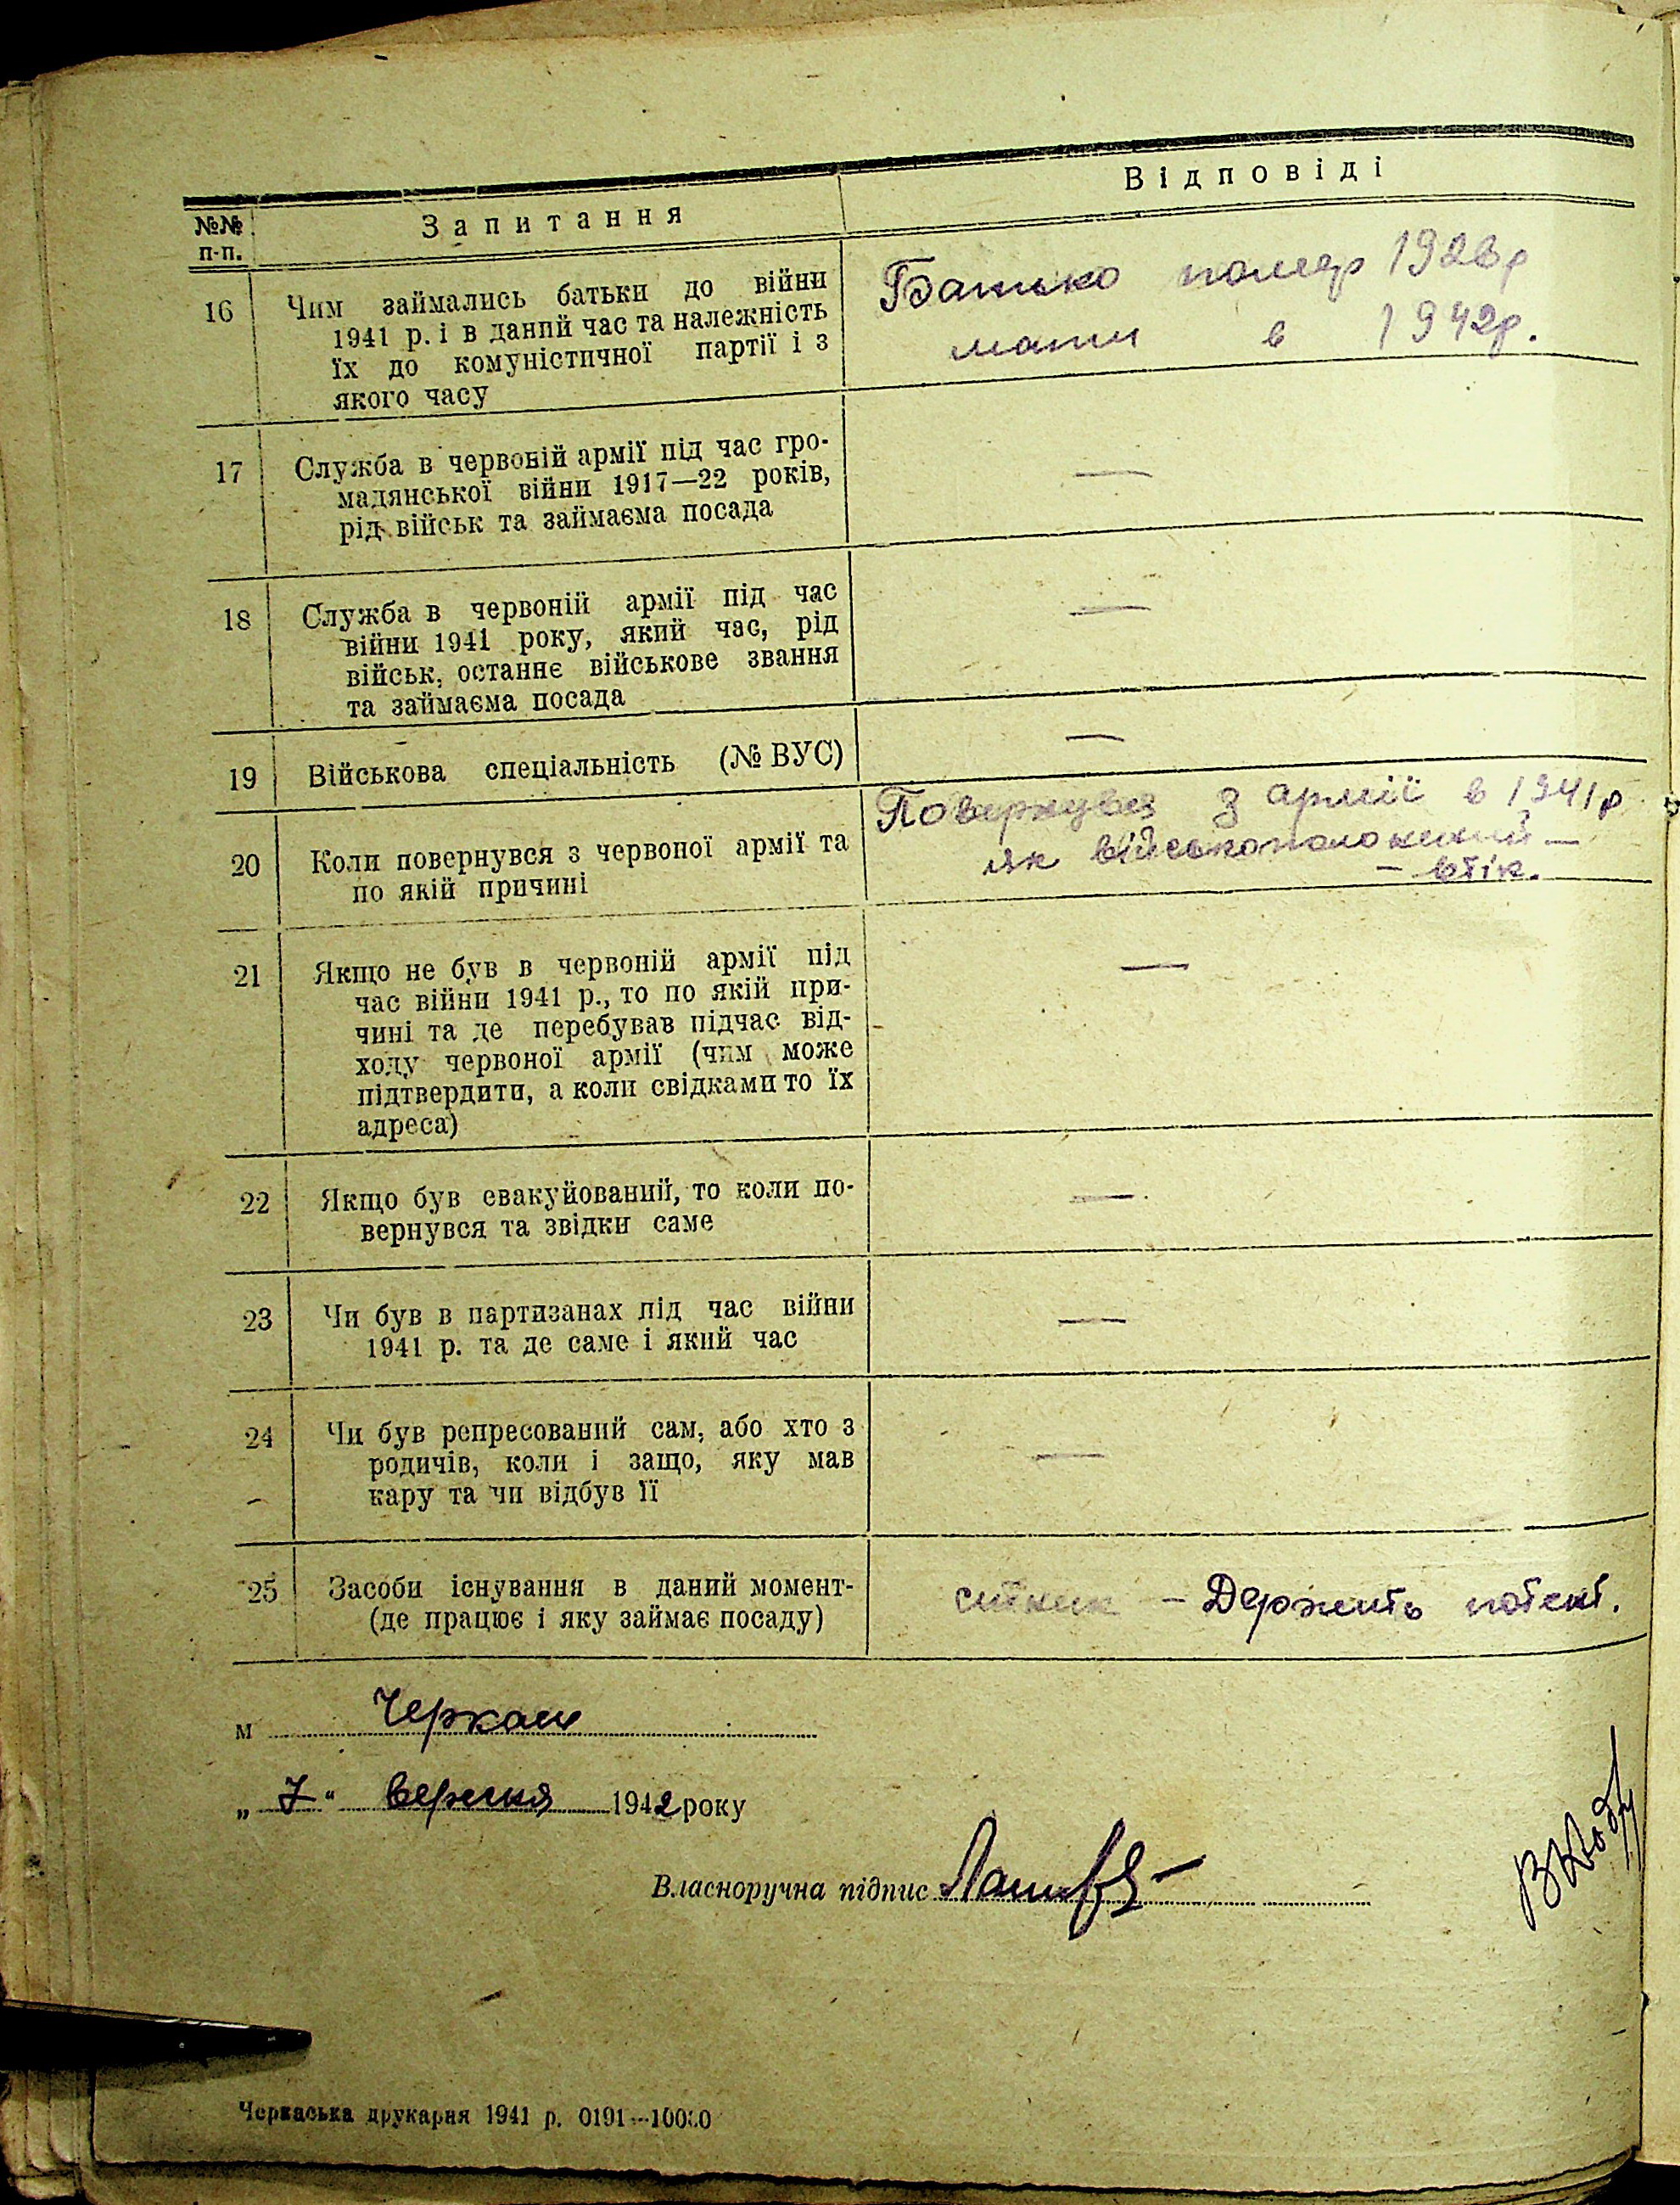 №№ п-п. Запитання Відповіді
16 Чим займались батьки до війни
1941 р. і в даний час та належність
їх до комуністичної партії і з
якого часу
Батько помер 1923р
мати в 1942р.
17 Служба в червоній армії під час гро-
мадянської війни 1917—22 років,
рід військ та займаєма посада
—
18 Служба в червоній армії під час
війни 1941 року, який час, рід
військ, останнє військове звання
та займаєма посада
—
19 Військова спеціальність (№ ВУС)
—
20 Коли повернувся з червоної армії та
по якій причині
Повернувся з армії в 1941р
як військополонений —
— втік.
21 Якщо не був в червоній армії під
час війни 1941 р., то по якій при-
чині та де перебував підчас від-
ходу червоної армії (чим може
підтвердити, а коли свідками то їх
адреса)
—
22 Якщо був евакуйований, то коли по-
вернувся та звідки саме
—
23 Чи був в партизанах під час війни
1941 р. та де саме і який час
—
24 Чи був репресований сам, або хто з
родичів, коли і защо, яку мав
кару та чи відбув її
—
25 Засоби існування в даний момент-
(де працює і яку займає посаду)
ситник — Держить потент.
м Черкаси
„7" вересня 1942 року
Власноручна підпис
Черкаська друкарня 1941 р. 0191—10000